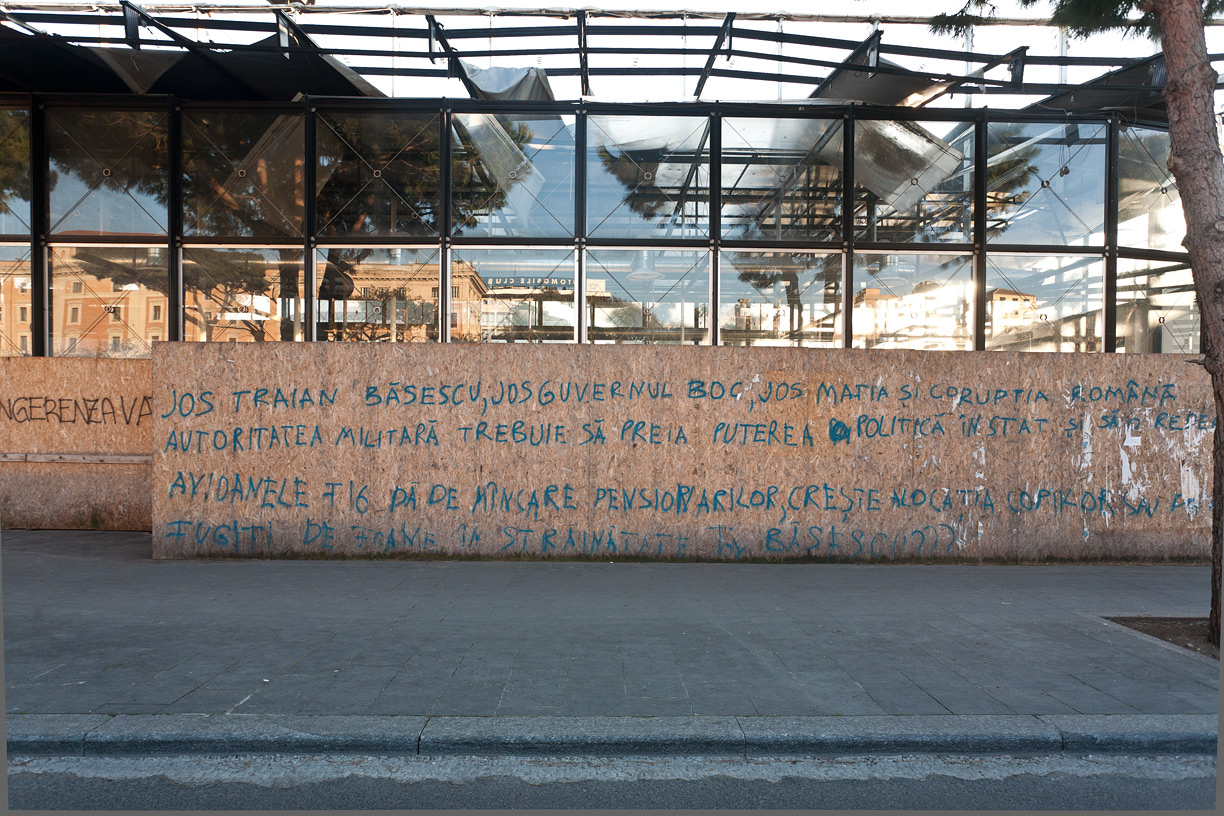 TOMOBILE CLUB
NGERENZA VA
JOS TRAIAN BĂSESCU, JOS GUVERNUL BOC, JOS MAFIA ȘI CORUPȚIA ROMÂNĂ
AUTORITATEA MILITARĂ TREBUIE SĂ PREIA PUTEREA POLITICĂ ÎN STAT ȘI SĂ
AVIOANELE F16 DĂ DE MÎNCARE PENSIONARILOR, CREȘTE ALOCAȚIA COPIILOR, SAU
FUGIȚI DE FOAME ÎN STRĂINĂTATE BĂSESCU???